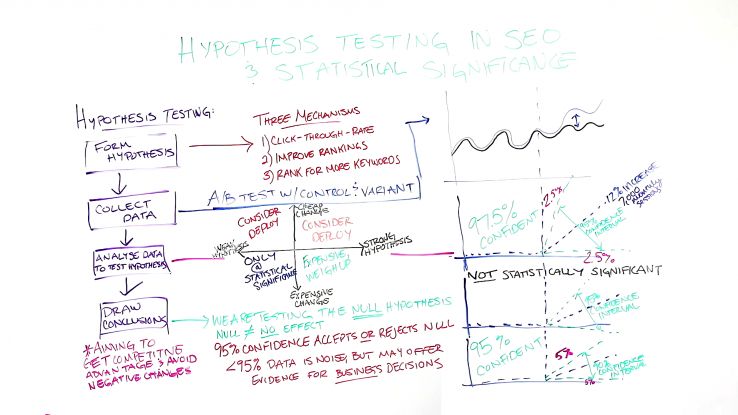 HYPOTHESIS TESTING IN SEO
& STATISTICAL SIGNIFICANCE
HYPOTHESIS TESTING:
FORM
HYPOTHESIS
COLLECT
DATA
ANALYSE DATA
TO TEST HYPOTHESIS
DRAW
CONCLUSIONS
*AIMING TO
GET COMPETITIVE
ADVANTAGE & AVOID
NEGATIVE CHANGES
THREE MECHANISMS
1) CLICK-THROUGH-RATE
2) IMPROVE RANKINGS
3) RANK FOR MORE KEYWORDS
A/B TEST W/ CONTROL & VARIANT
CHEAP
CHANGE
CONSIDER
DEPLOY
CONSIDER
DEPLOY
WEAK
HYPOTHESIS
STRONG
HYPOTHESIS
ONLY
@
STATISTICAL
SIGNIFICANCE
EXPENSIVE,
WEIGH UP
EXPENSIVE
CHANGE
WE ARE TESTING THE NULL HYPOTHESIS
NULL ≠ NO EFFECT
95% CONFIDENCE ACCEPTS OR REJECTS NULL
<95% DATA IS NOISE, BUT MAY OFFER
EVIDENCE FOR BUSINESS DECISIONS
97.5%
CONFIDENT
2.5%
95% CONFIDENCE
INTERVAL
12% INCREASE
7,000
MONTHLY
SESSIONS
2.5%
NOT STATISTICALLY SIGNIFICANT
95%
CONFIDENCE
INTERVAL
95%
CONFIDENT
5%
90% CONFIDENCE
INTERVAL
5%